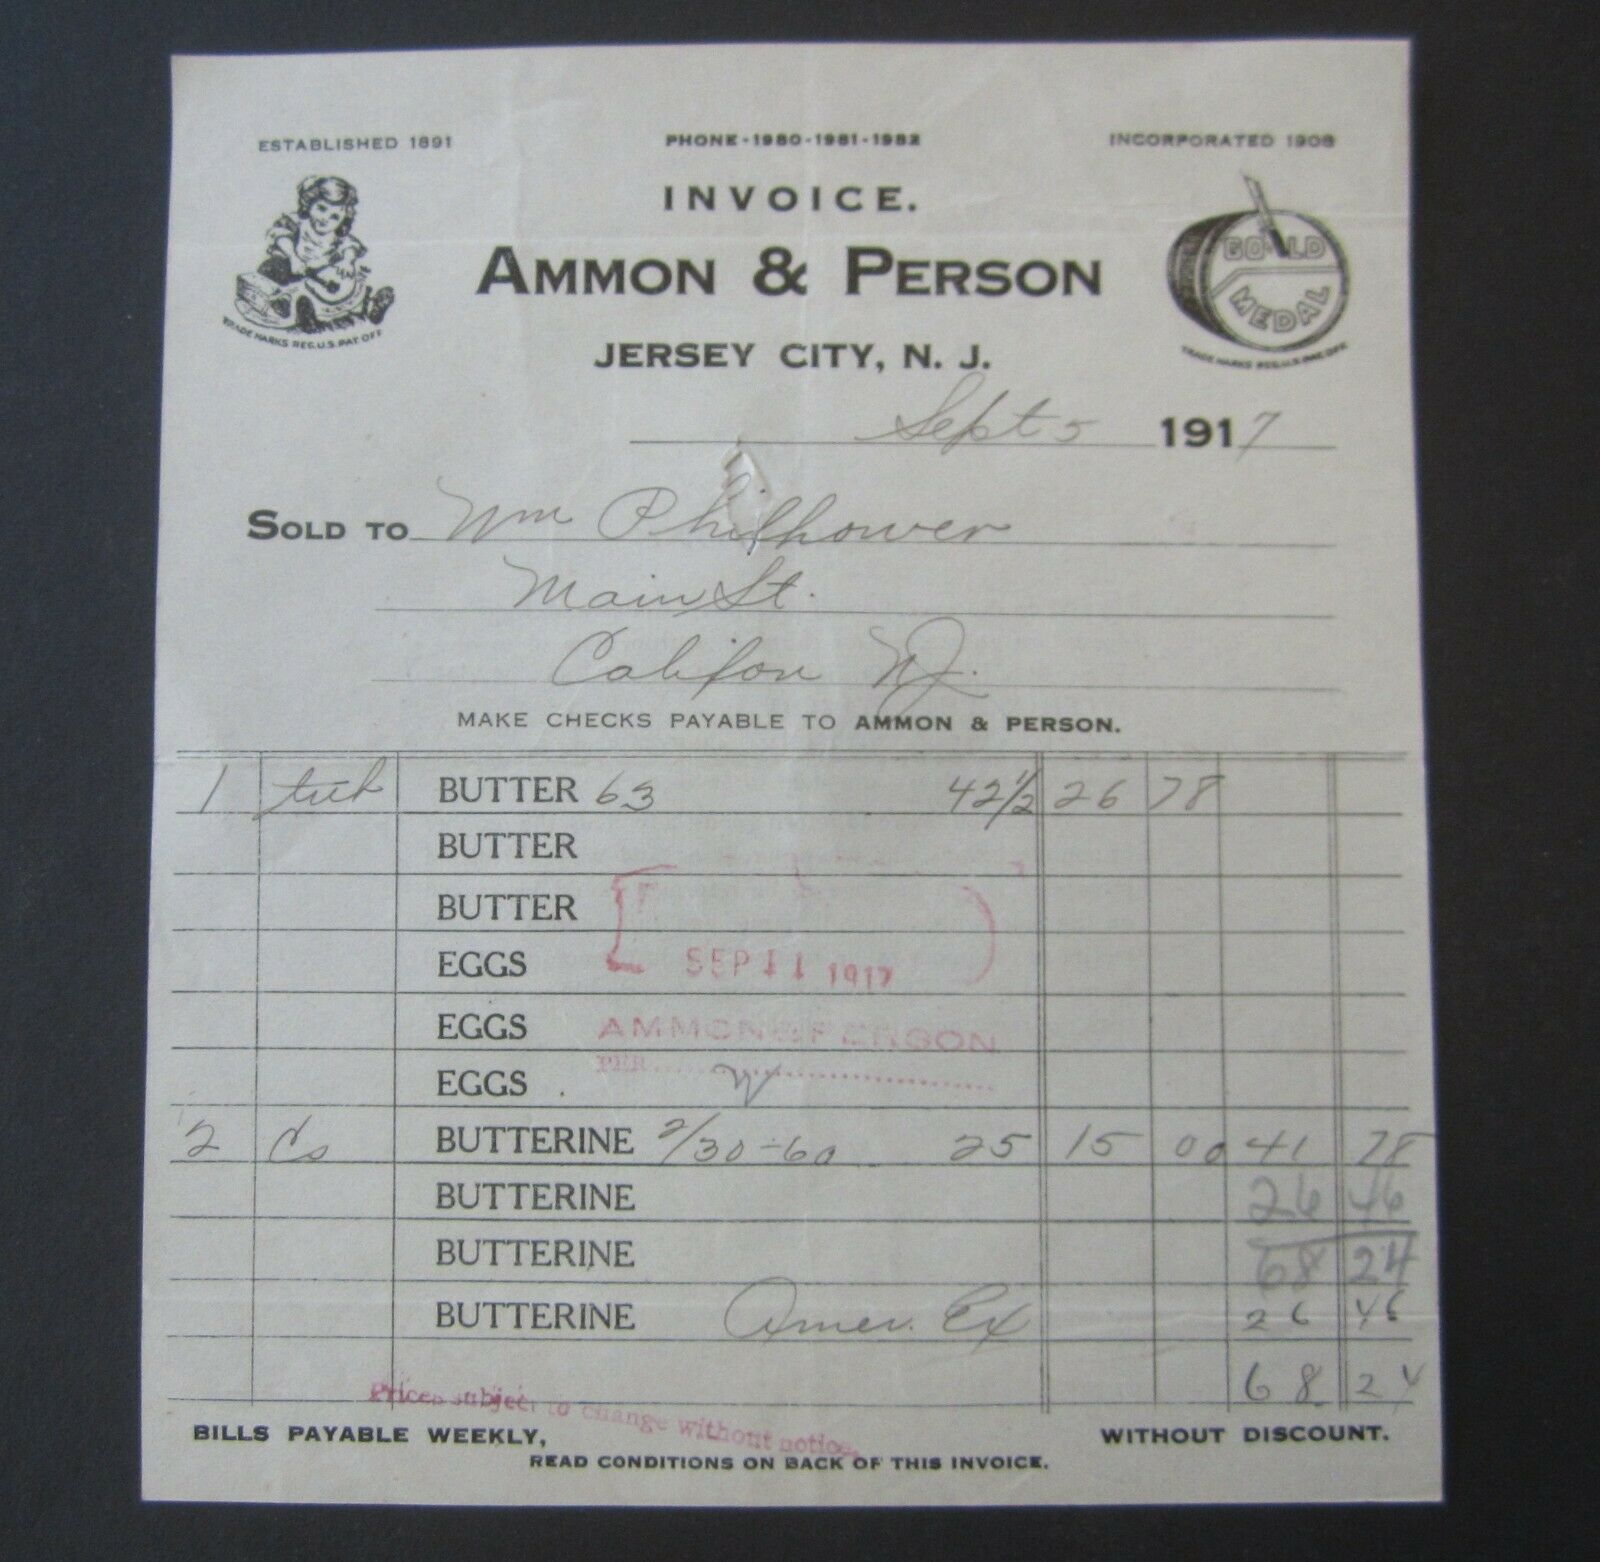 ESTABLISHED 1891
PHONE-1980-1981-1982
INCORPORATED 1908
INVOICE.
GOLD MEDAL
AMMON & PERSON
TRADE MARKS REG.U.S.PAT.OFF.
TRADE MARKS REG.U.S.PAT.OFF.
JERSEY CITY, N. J.
Sept 5 1917
SOLD TO Wm Philhower
Main St.
Califon NJ.
MAKE CHECKS PAYABLE TO AMMON & PERSON.
1 tub BUTTER 63 42 1/2 26 78
BUTTER
BUTTER
EGGS SEP 11 1917
EGGS AMMON & PERSON
PER
EGGS
2 Cs BUTTERINE 2/30-60 25 15 00 41 78
BUTTERINE 26 46
BUTTERINE 68 24
BUTTERINE Amer. Ex 26 46
68 24
Prices subject to change without notice.
BILLS PAYABLE WEEKLY, WITHOUT DISCOUNT.
READ CONDITIONS ON BACK OF THIS INVOICE.